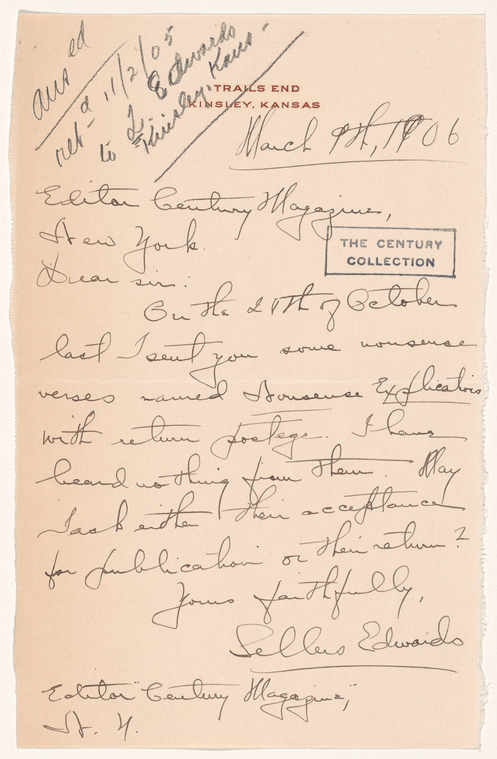 ans ed
ret d 11/2/05
to L. Edwards
Kinsley, Kans -
TRAILS END
KINSLEY, KANSAS
March 9th, 1906
Editor Century Magazine,
New York.
Dear sir:
THE CENTURY
COLLECTION
On the 28th of October
last I sent you some nonsense
verses named Nonsense
with return postage. I have
heard nothing from them. May
I ask either their acceptance
for publication or their return?
Yours faithfully,
Sellers Edwards
Editor "Century Magazine",
N. Y.